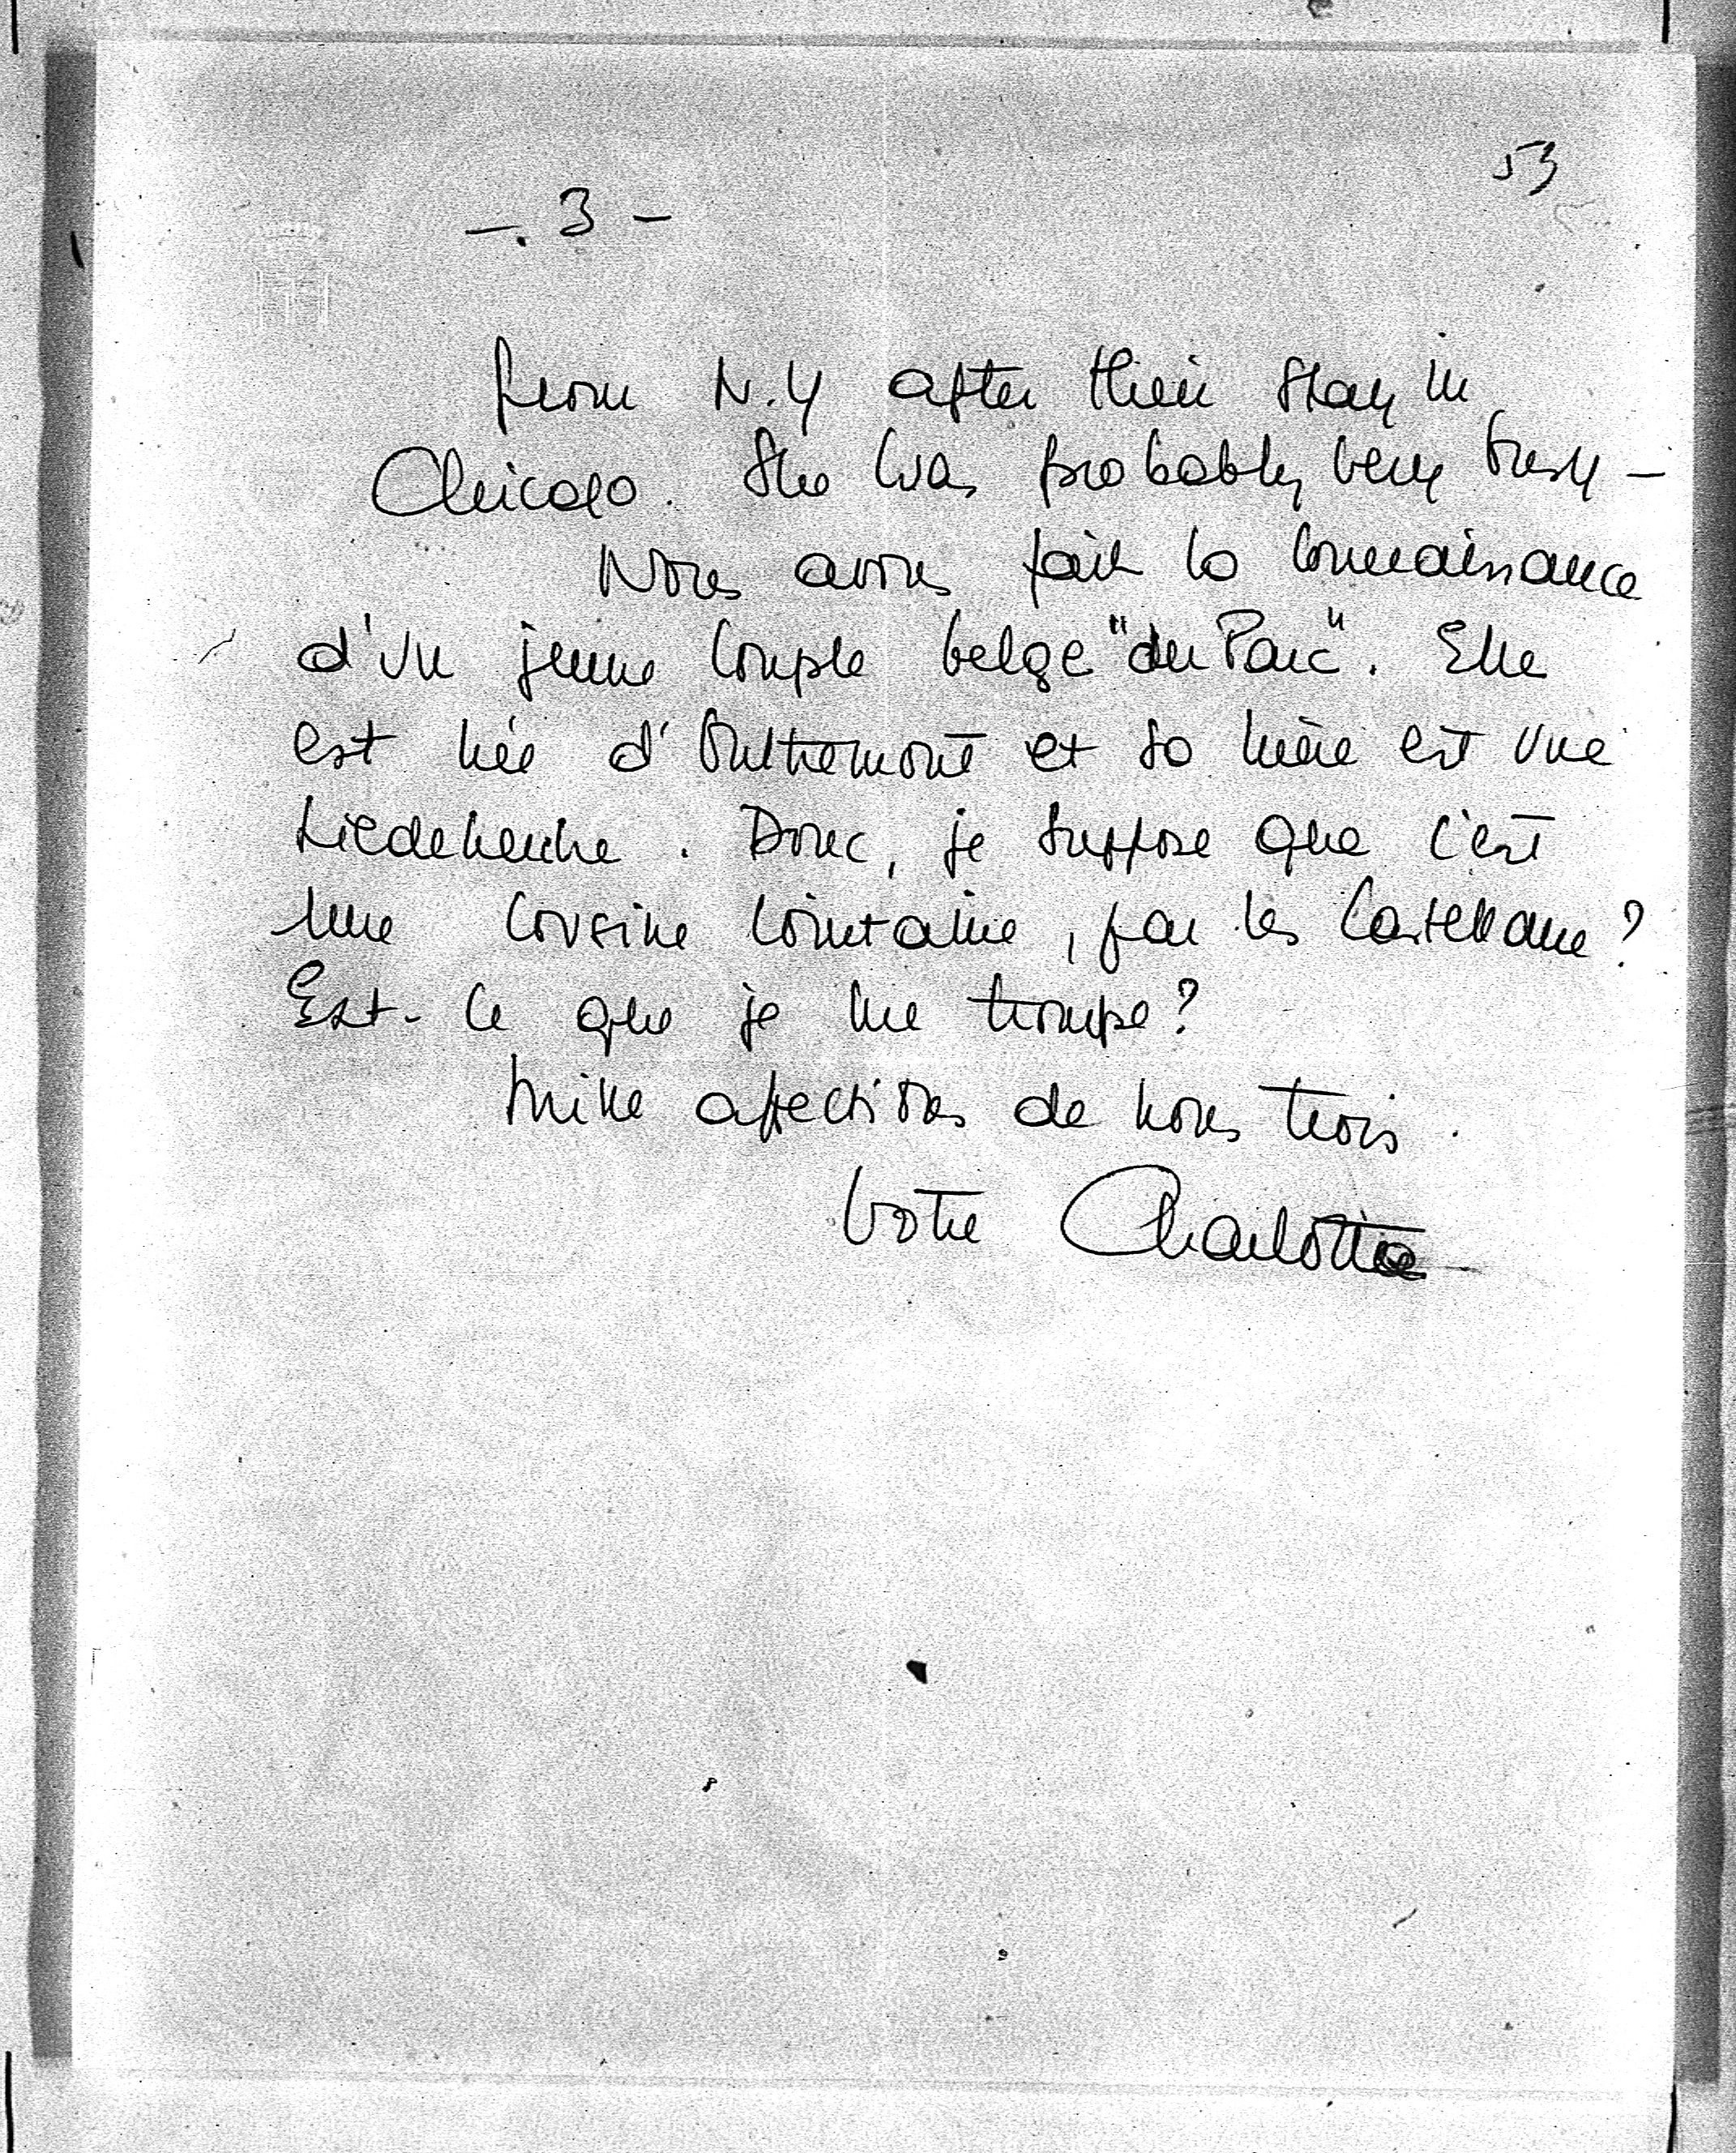 53
-. 3 -
from N.Y after their stay in
Chicago. She was probably very busy -
Nous avons fait la connaissance
d'un jeune couple belge "du Parc". Elle
est née d'Oultremont et sa mère est une
Liedekerke. Donc, je suppose que c'est
une cousine lointaine, par les Castellane ?
Est-ce que je me trompe ?
Mille affections de nous trois.
Votre Charlotte